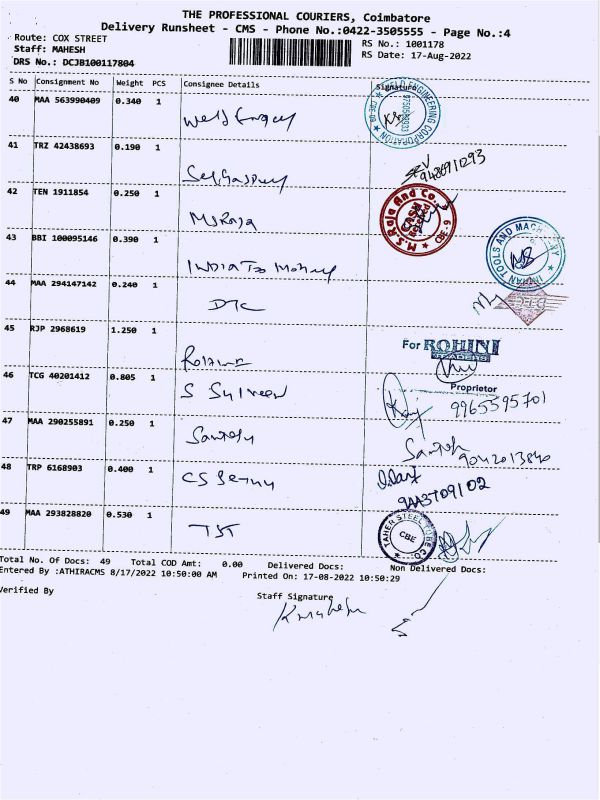 THE PROFESSIONAL COURIERS, Coimbatore
Delivery Runsheet - CMS - Phone No.:0422-3505555 - Page No.:4
Route: COX STREET
RS No.: 1001178
Staff: MAHESH
RS Date: 17-Aug-2022
DRS No.: DCJB100117804
S No Consignment No Weight PCS Consignee Details Signature
40 MAA 563990409 0.340 1
41 TRZ 42438693 0.190 1
9486911293
42 TEN 1911854 0.250 1 MSRaja
M.S.Raja And Co. CBE - 6
43 BBI 100095146 0.390 1
TOOLS AND MACHINERY
44 MAA 294147142 0.240 1 DTC
45 RJP 2968619 1.250 1
For ROHINI TRADERS
Proprietor
46 TCG 40201412 0.805 1
9965595701
47 MAA 290255891 0.250 1 Santosh
Santosh
9042013840
48 TRP 6168903 0.400 1
49 MAA 293828820 0.530 1 TST
TAHER STEEL TUBE CO. CBE
Total No. Of Docs: 49 Total COD Amt: 0.00 Delivered Docs: Non Delivered Docs:
Entered By :ATHIRACMS 8/17/2022 10:50:00 AM Printed On: 17-08-2022 10:50:29
Verified By
Staff Signature
K Mahesh